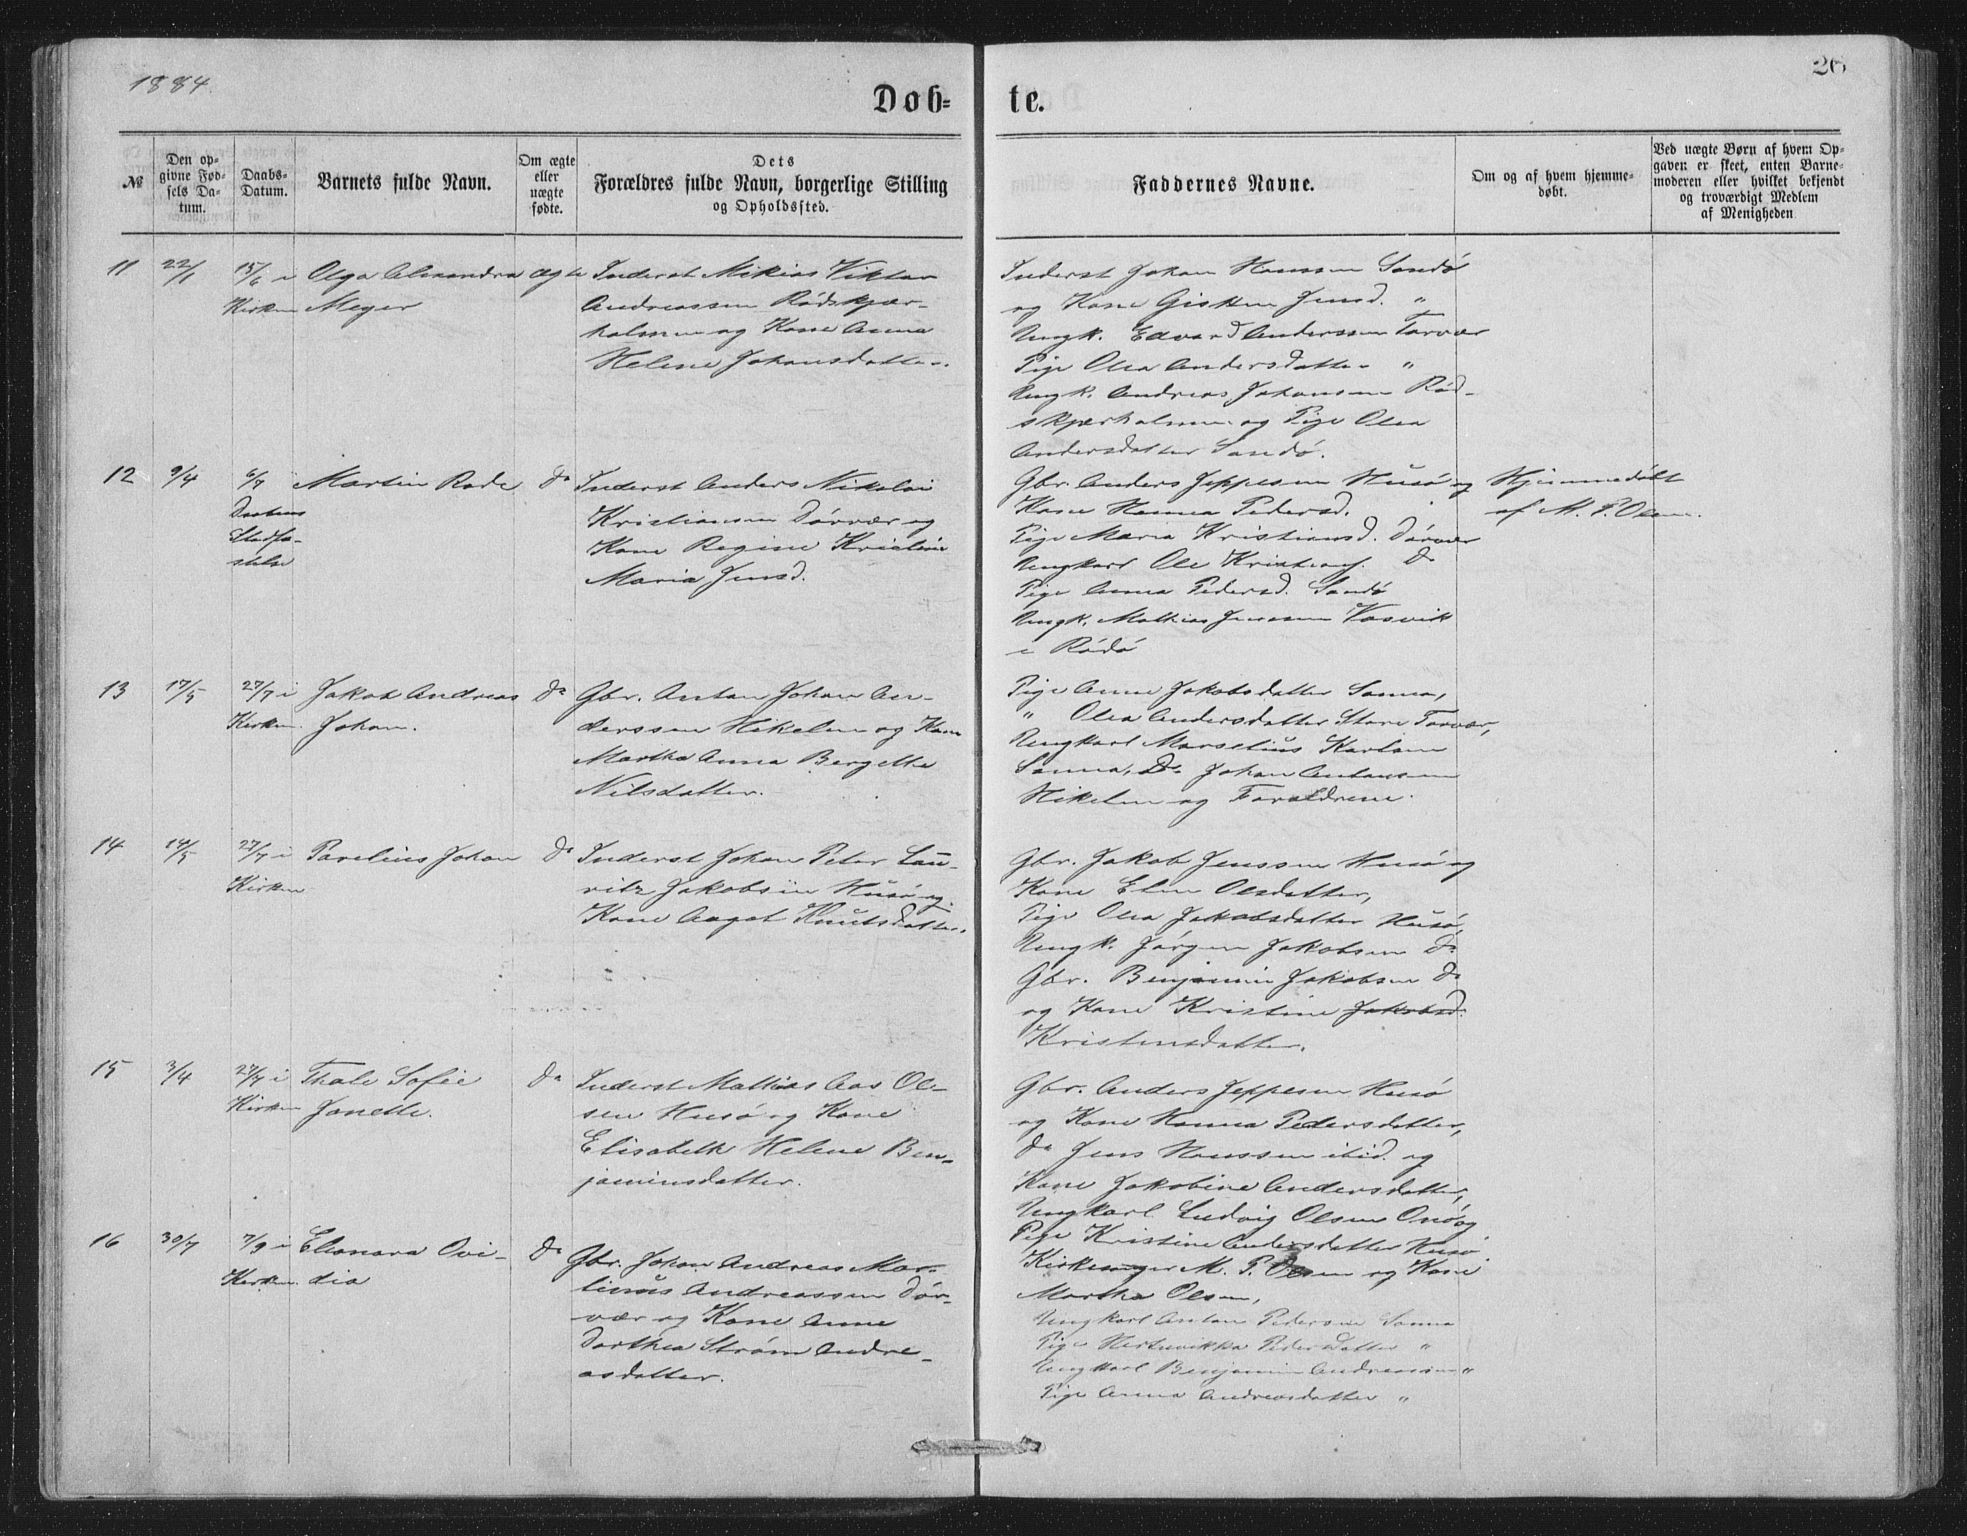 1884.
26
Døb- te.
№
Den op-
givne Fød-
sels Da-
tum.
Daabs-
Datum.
Barnets fulde Navn.
Om ægte
eller
uægte
fødte.
Dets
Forældres fulde Navn, borgerlige Stilling
og Opholdssted.
Faddernes Navne.
Om og af hvem hjemme-
døbt.
Ved uægte Børn af hvem Op-
gaven er skeet, enten Barne-
moderen eller hvilket bekjendt
og troværdigt Medlem
af Menigheden
11
22/1
15/6 i
Kirken
Olga Alexandra
Meyer
ægte
Inderst Mikias Viktor
Andreassen Rødskjær-
holmen og Kone Anna
Helene Johansdatter.
Inderst Johan Hanssen Sandø
og Kone Gisken Jensd. "
Ungk. Edvard Anderssen Torvær
Pige Olea Andersdatter "
Ungk. Andreas Johansen Rød-
skjærholmen og Pige Olea
Andersdatter Sandø.
12
9/4
6/7
Daabens
Stadfæ-
stelse
Martin Rode
Do
Inderst Anders Nikolai
Kristiansen Dørvær og
Kone Regine Kristine
Maria Jensd.
Gbr. Anders Jeppesen Husø og
Kone Hanna Pedersd.
Pige Maria Kristiansd. Dørvær
Ungkarl Ole Kristians. Do
Pige Anna Pedersd. Sandø
Ungk. Mathias Jenssen Vasvik
i Rødø
Hjemmedøbt
af M. P. Olsen.
13
17/5
27/7 i
Kirken
Jakob Andreas
Johan.
Do
Gbr. Anton Johan An-
derssen Hikelen og Kone
Martha Anna Bergette
Nilsdatter.
Pige Anne Jakobsdatter Sonna,
" Olea Andersdatter Store Torvær,
Ungkarl Marselius Karlsen
Sonna, Do Johan Antonsen
Hikelen og Forældrene.
14
14/5
27/7 i
Kirken
Parelius Johan
Do
Inderst Johan Peter Lau-
ritz Jakobsen Husø og
Kone Aagot Knutsdatter.
Gbr. Jakob Jenssen Husø og
Kone Elen Olsdatter,
Pige Olea Jakobsdatter Husø,
Ungk. Jørgen Jakobsen Do
Gbr. Benjamin Jakobsen Do
og Kone Kristine Jakobsd.
Kristensdatter.
15
3/4
27/7 i
Kirken
Thale Sofie
Janette.
Do
Inderst Mathias Aas Ol-
sen Husø og Kone
Elisabeth Helene Ben-
jaminsdatter.
Gbr. Anders Jeppesen Husø
og Kone Hanna Pedersdatter,
Do Jens Hanssen ibid. og
Kone Jakobine Andersdatter,
Ungkarl Ludvig Olsen Onø og
Pige Kristine Andersdatter Husø
16
30/7
7/9 i
Kirken
Elonora Ovi-
dia
Do
Gbr. Johan Andreas Mar-
tinus Andreassen Dør-
vær og Kone Anne
Dorthea Strøm Andre-
asdatter.
Kirkesanger M. P. Olsen og Kone
Martha Olsen,
Ungkarl Anton Pedersen Sonna
Pige Pedersdatter "
Ungkarl Benjamin Andreassen "
Pige Anna Andreasdatter "